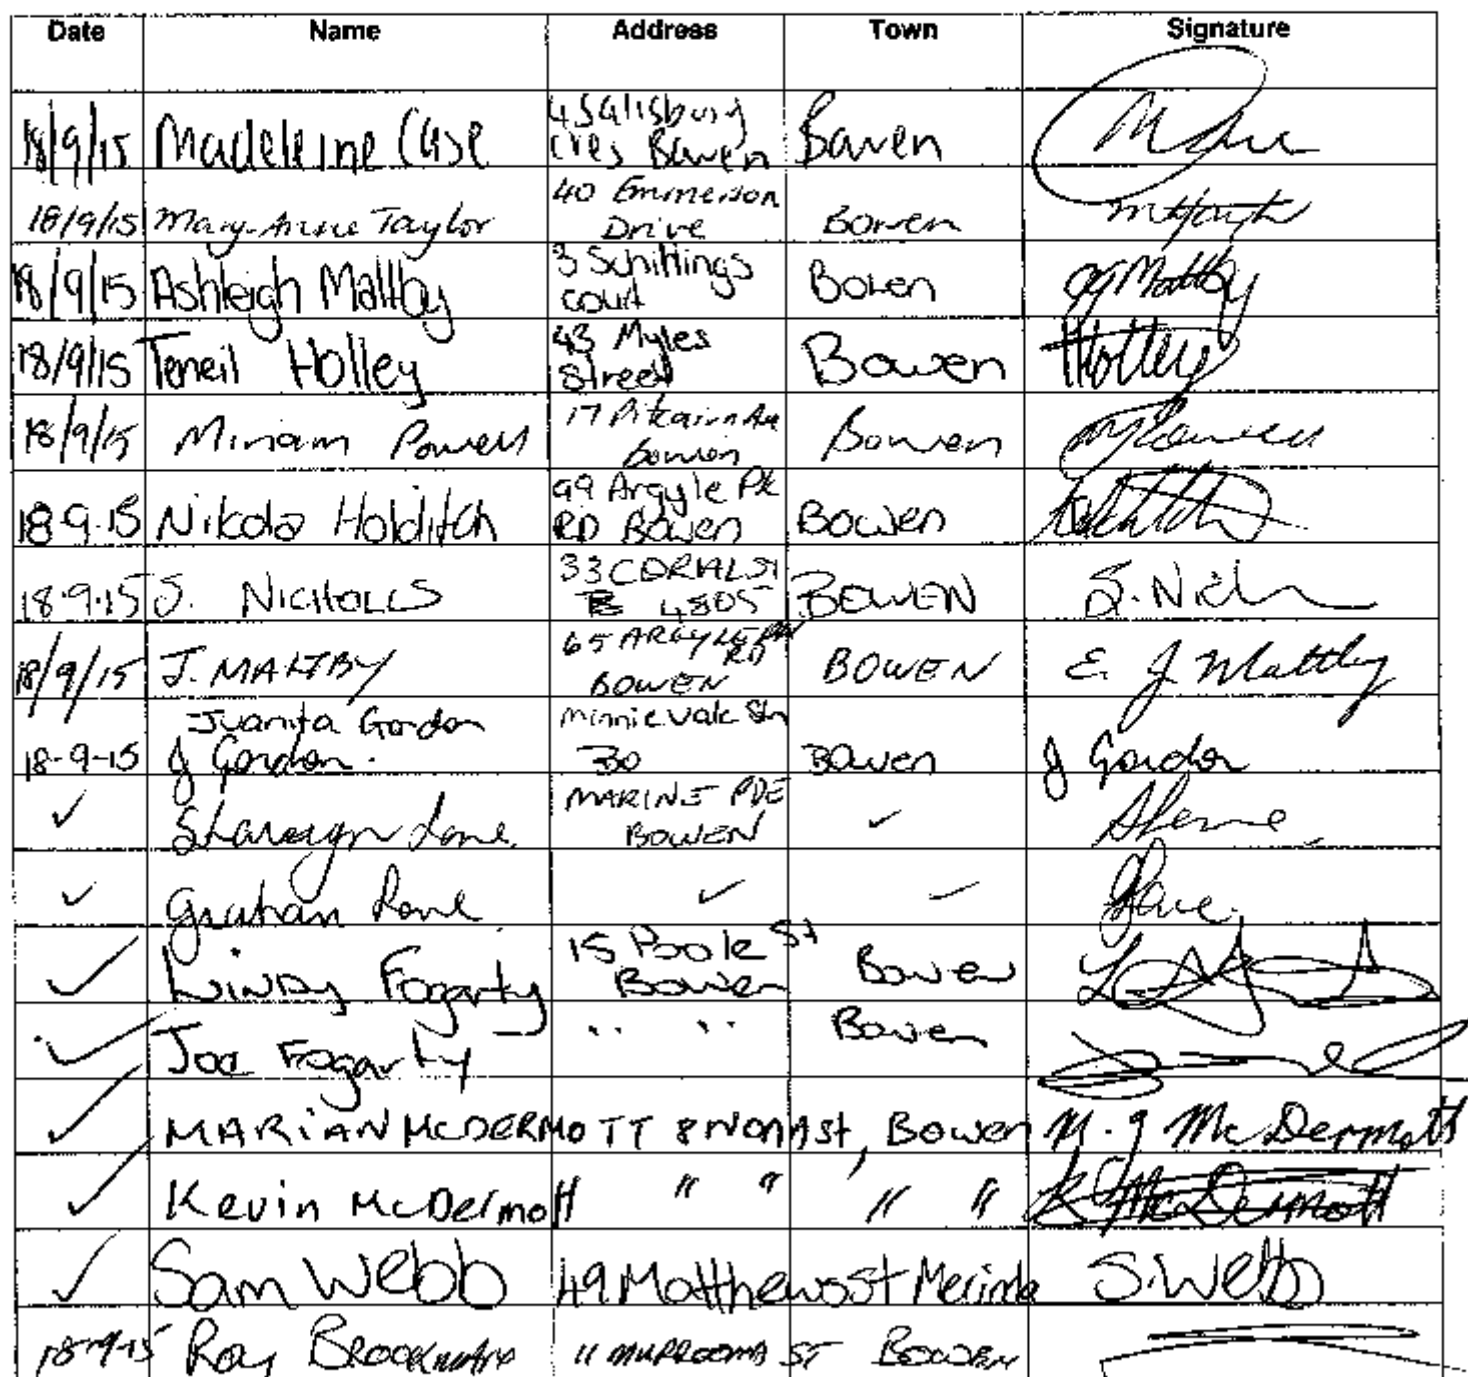 Date Name Address Town Signature
18/9/15 Madeleine Case 4 Salisbury Cres Bowen Bowen
18/9/15 Mary-Anne Taylor 40 Emmerson Drive Bowen
18/9/15 Ashleigh Maltby 3 Schillings Court Bowen Maltby
18/9/15 Teneil Holley 43 Myles Street Bowen Holley
18/9/15 Miriam Powell 17 Pitcairn Av Bowen Bowen
18.9.15 Nikola Holditch 99 Argyle Pk RD Bowen Bowen
18.9.15 S. NICHOLLS 33 CORAL ST 4805 BOWEN S. Nich
18/9/15 J. MALTBY 65 ARGYLE PK RD BOWEN BOWEN E. J Maltby
18-9-15 Juanita Gordon J Gordon. Minnievale Bo Bowen J Gordon
✓ Lane MARINE PDE BOWEN ✓
✓ Graham Lane ✓ ✓
✓ Lindy Fogarty 15 Poole St Bowen Bowen
✓ Joe Fogarty " " Bowen
✓ MARIAN MCDERMOTT 8 NONA St, Bowen M. J McDermott
✓ Kevin McDermott " " " " K McDermott
✓ Sam Webb 49 Matthews St Merinda S. Webb
18-9-15 Ray ST BOWEN